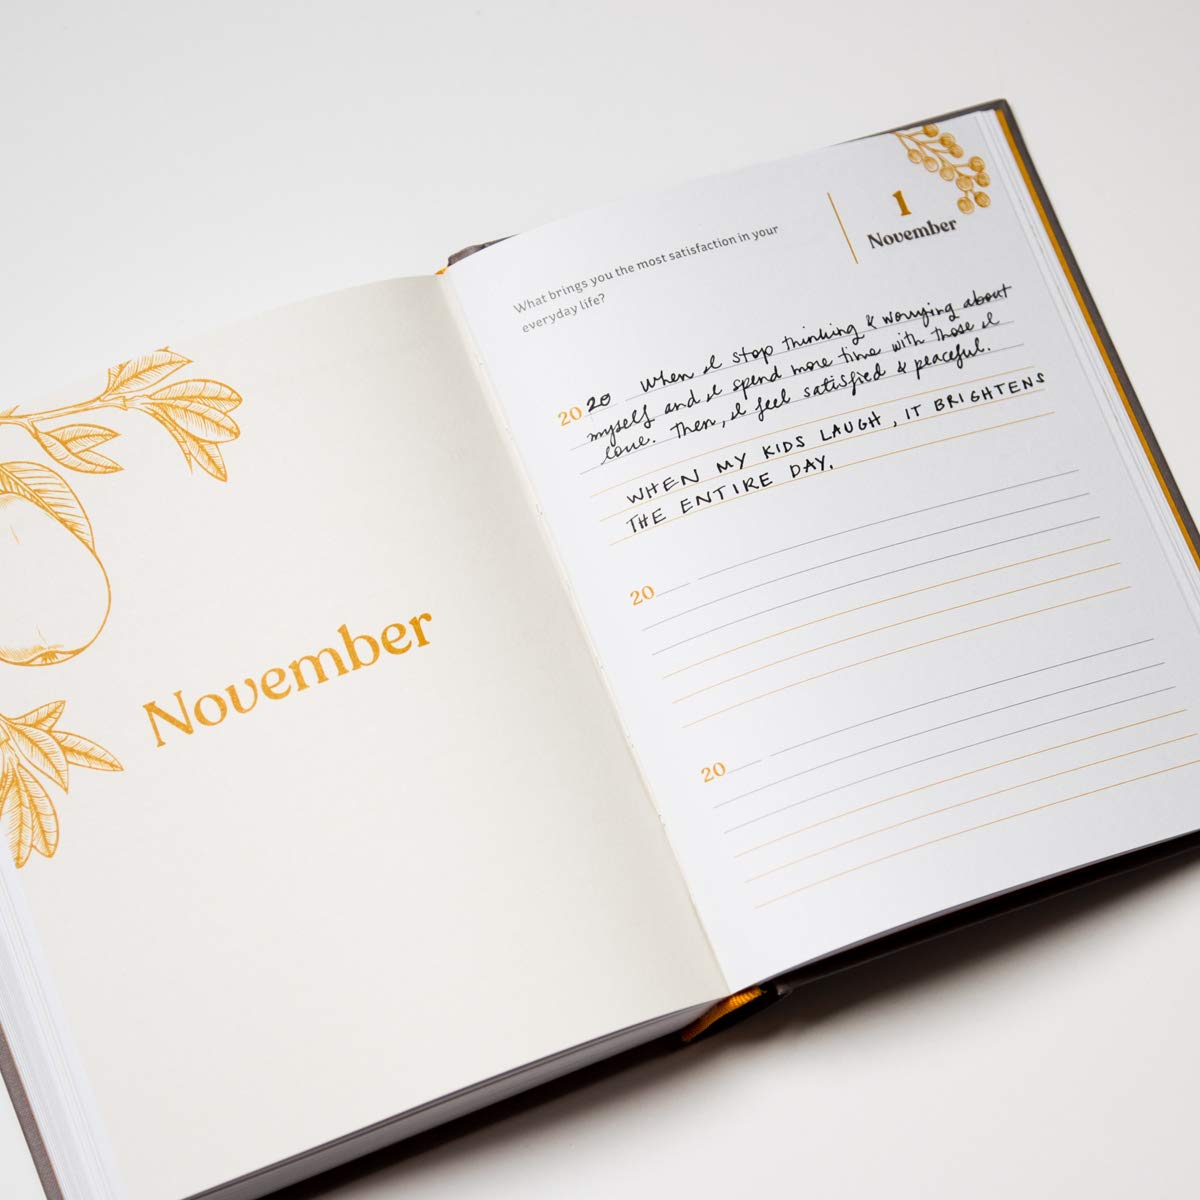 November
1
November
What brings you the most satisfaction in your
everyday life?
20 20 When I stop thinking & worrying about
myself and I spend more time with those I
love. Then, I feel satisfied & peaceful.
WHEN MY KIDS LAUGH, IT BRIGHTENS
THE ENTIRE DAY.
20
20